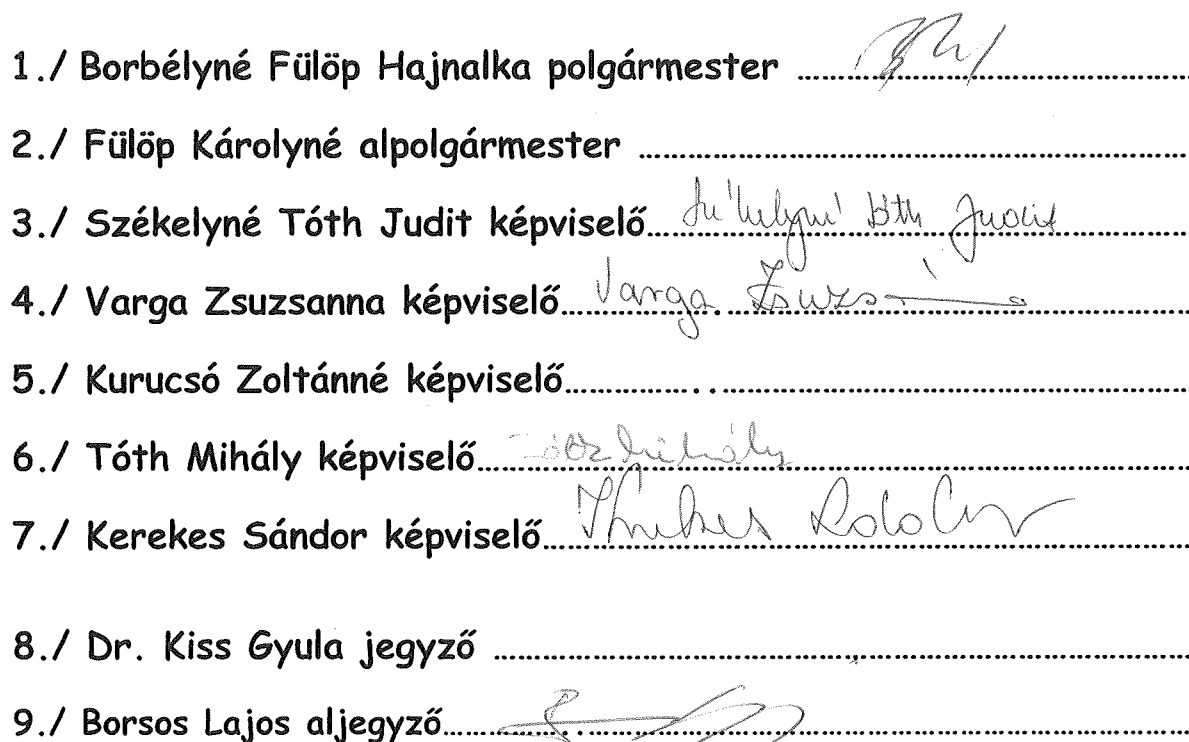 1./ Borbélyné Fülöp Hajnalka polgármester ..........
2./ Fülöp Károlyné alpolgármester ..........
3./ Székelyné Tóth Judit képviselő.......... Székelyné Tóth Judit
4./ Varga Zsuzsanna képviselő.......... Varga
5./ Kurucsó Zoltánné képviselő..........
6./ Tóth Mihály képviselő.......... Mihály
7./ Kerekes Sándor képviselő.......... Kerekes
8./ Dr. Kiss Gyula jegyző ..........
9./ Borsos Lajos aljegyző..........